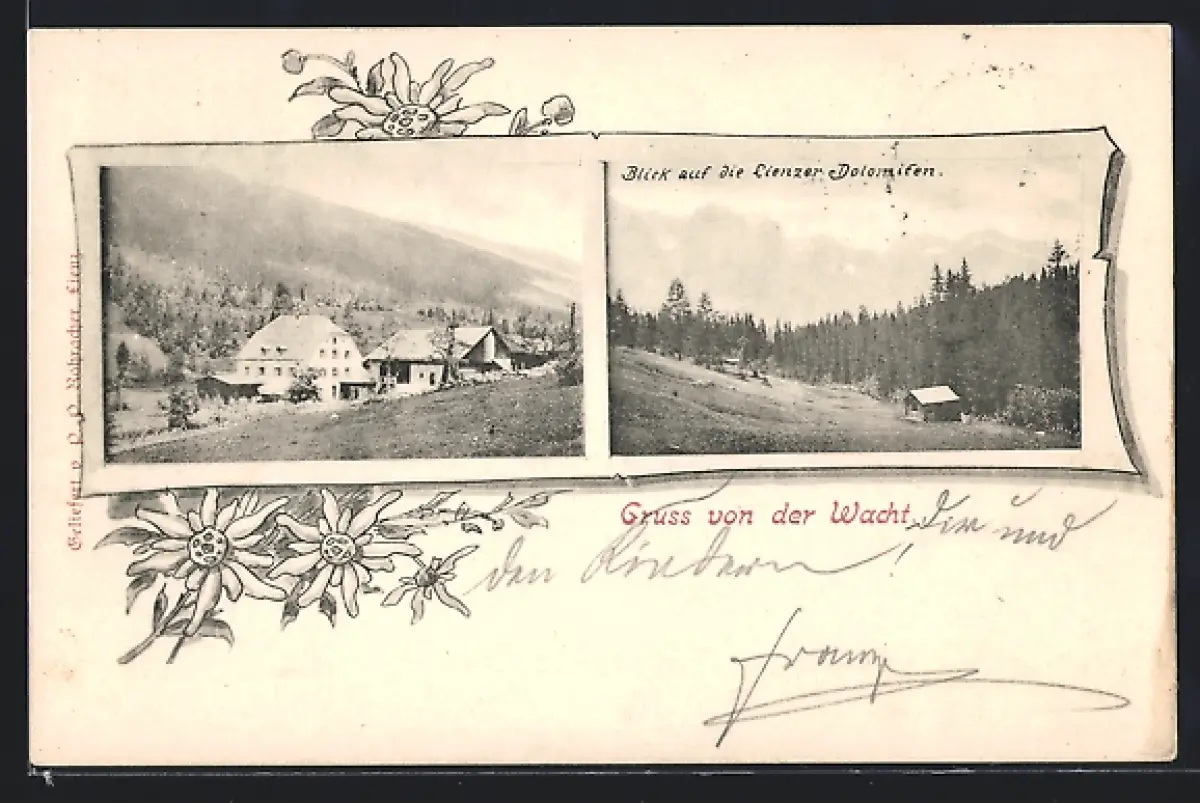 Blick auf die Lienzer Dolomiten.
Geliefert v. P. P. Rohracher, Lienz
Gruss von der Wacht, dir und
den Kindern!
Franz